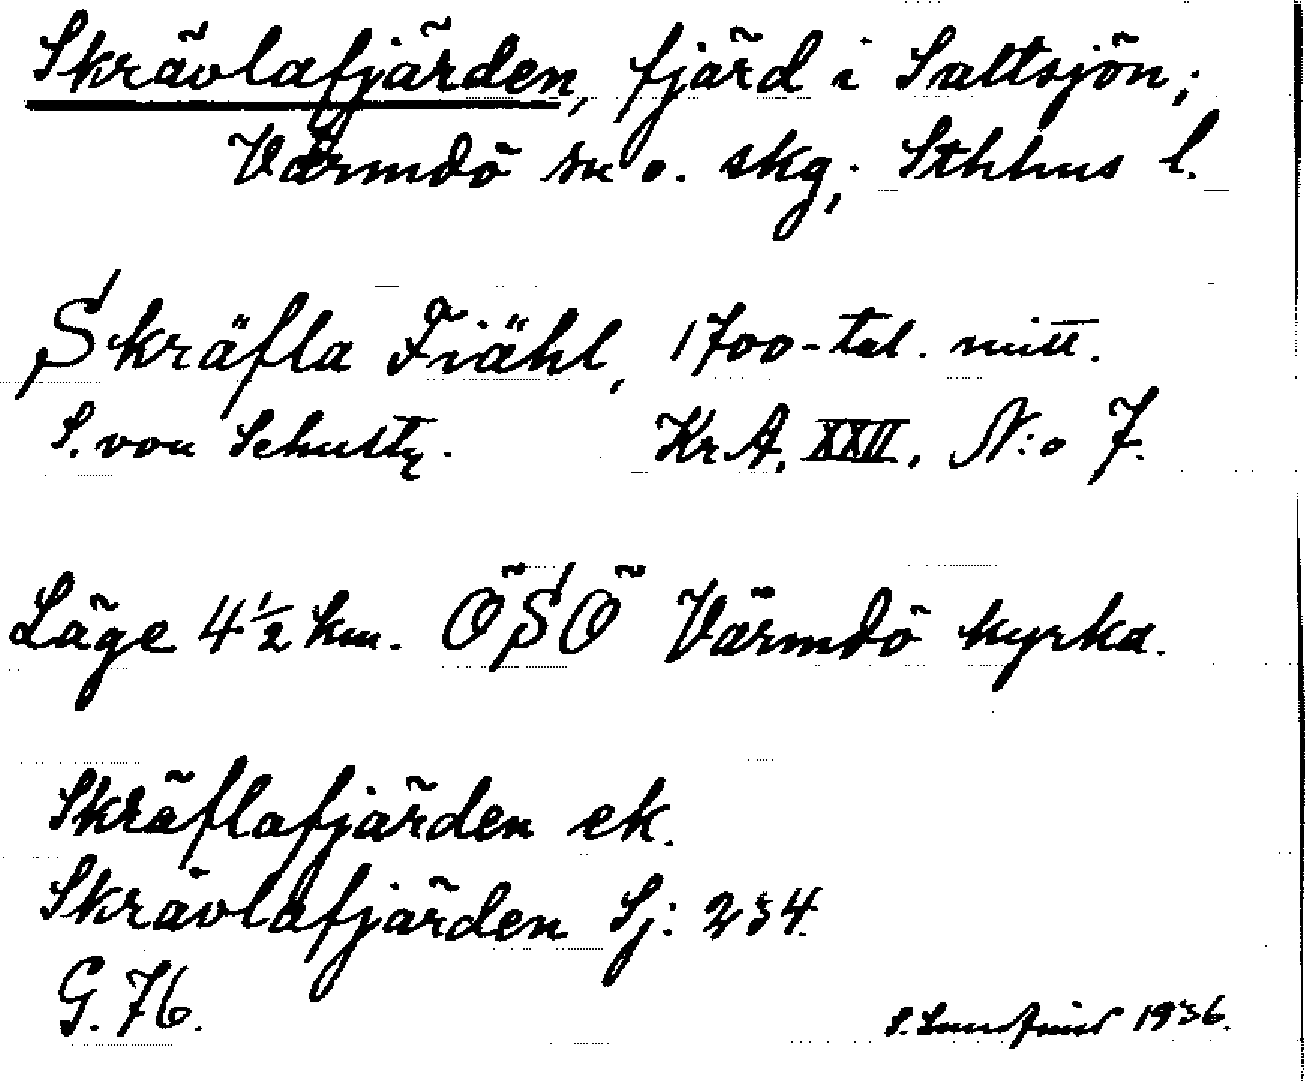 Skrävlafjärden, fjärd i Saltsjön;
Värmdö sn o. skg; Sthlms l.
Skräfla Fiähl, 1700-tal. mitt.
S. von Schultz. KrA. XXII. N:o 7.
Läge 4½ km. ÖSÖ Värmdö kyrka.
Skräflafjärden ek.
Skrävlafjärden Sj: 234.
G. 76.
S. 1936.